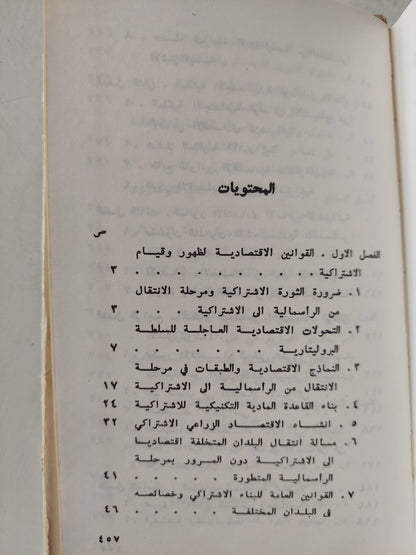 المحتويات
ص
الفصل الاول . القوانين الاقتصادية لظهور وقيام
الاشتراكية . . . . . . . . . ٣
١ . ضرورة الثورة الاشتراكية ومرحلة الانتقال
من الراسمالية الى الاشتراكية . . . . ٣
٢ . التحولات الاقتصادية العاجلة للسلطة
البروليتارية . . . . . . . ٧
٣ . النماذج الاقتصادية والطبقات في مرحلة
الانتقال من الراسمالية الى الاشتراكية ١٧
٤ . بناء القاعدة المادية التكنيكية للاشتراكية ٢٤
٥ . انشاء الاقتصاد الزراعي الاشتراكي ٣٢
٦ . مسالة انتقال البلدان المتخلفة اقتصاديا
الى الاشتراكية دون المرور بمرحلة
الراسمالية المتطورة . . . . . ٤١
٧ . القوانين العامة للبناء الاشتراكي وخصائصه
في البلدان المختلفة . . . . . ٤٦
٤٥٧